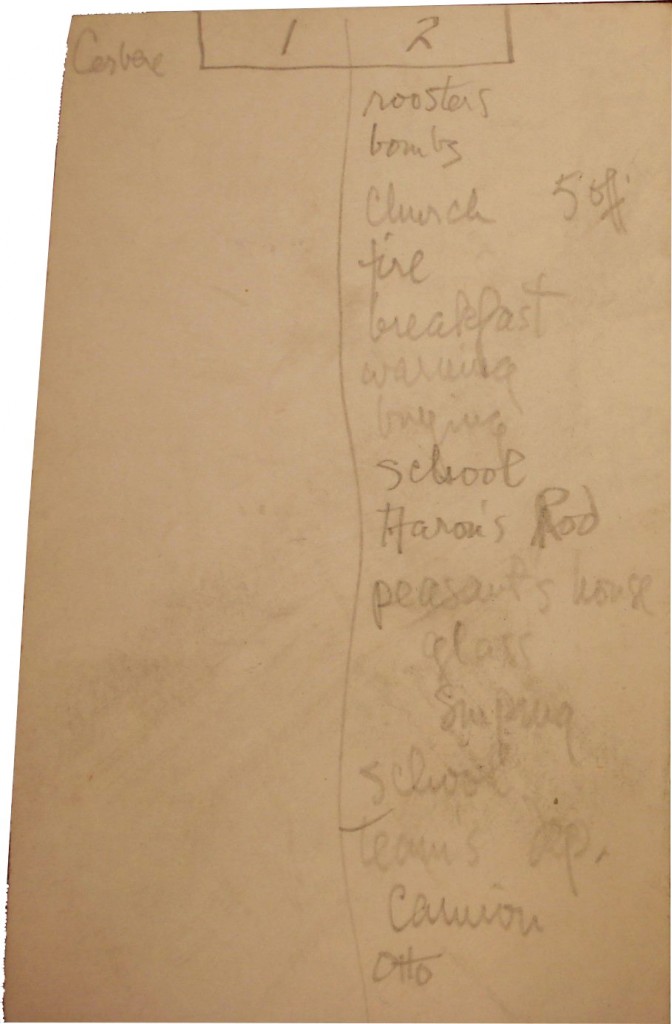 Cerbere 1 2
roosters
bombs
church 5 off
fire
breakfast
warning
buying
school
Haron's Rod
peasant's house
glass
Sniping
school
team's dep.
Camion
Otto